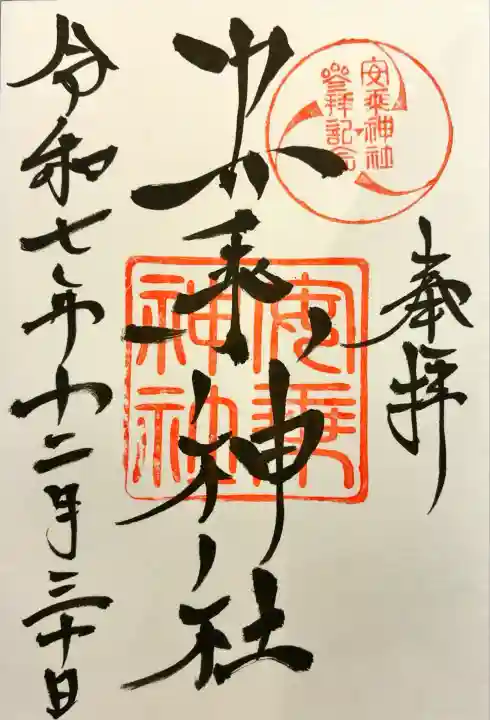 奉拝
安乗神社
参拝記念
安乗神社
安乗
神社
令和七年十二月三十日